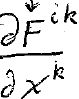 ∂F^{ik}
∂x^k